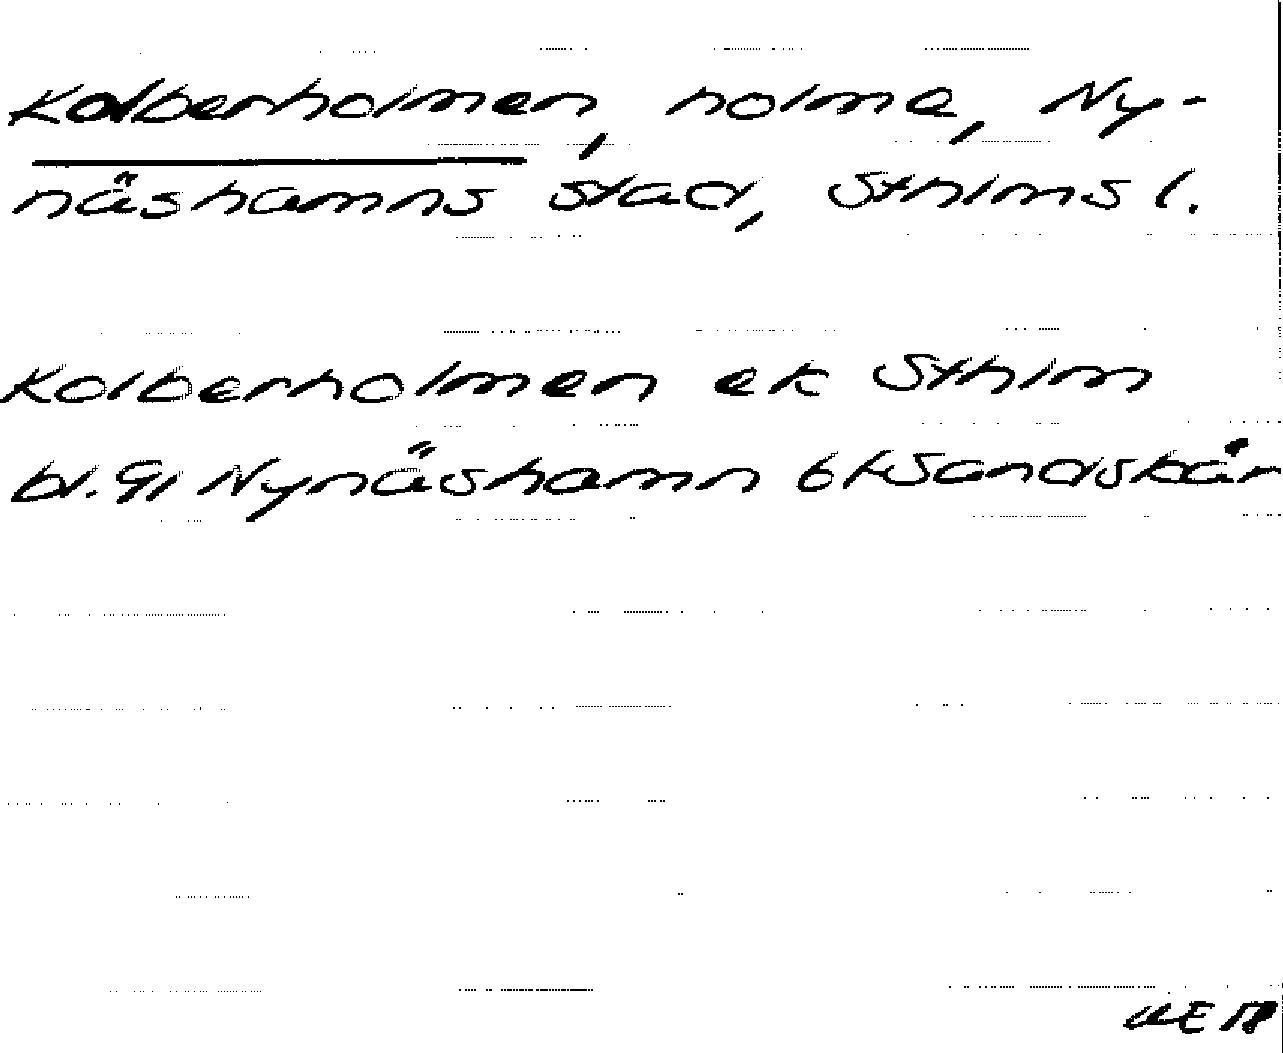 Kolberholmen, holme, Ny-
näshamns stad, Sthlms l.
Kolberholmen ek Sthlm
bl. 91 Nynäshamn 6 f Sandskär